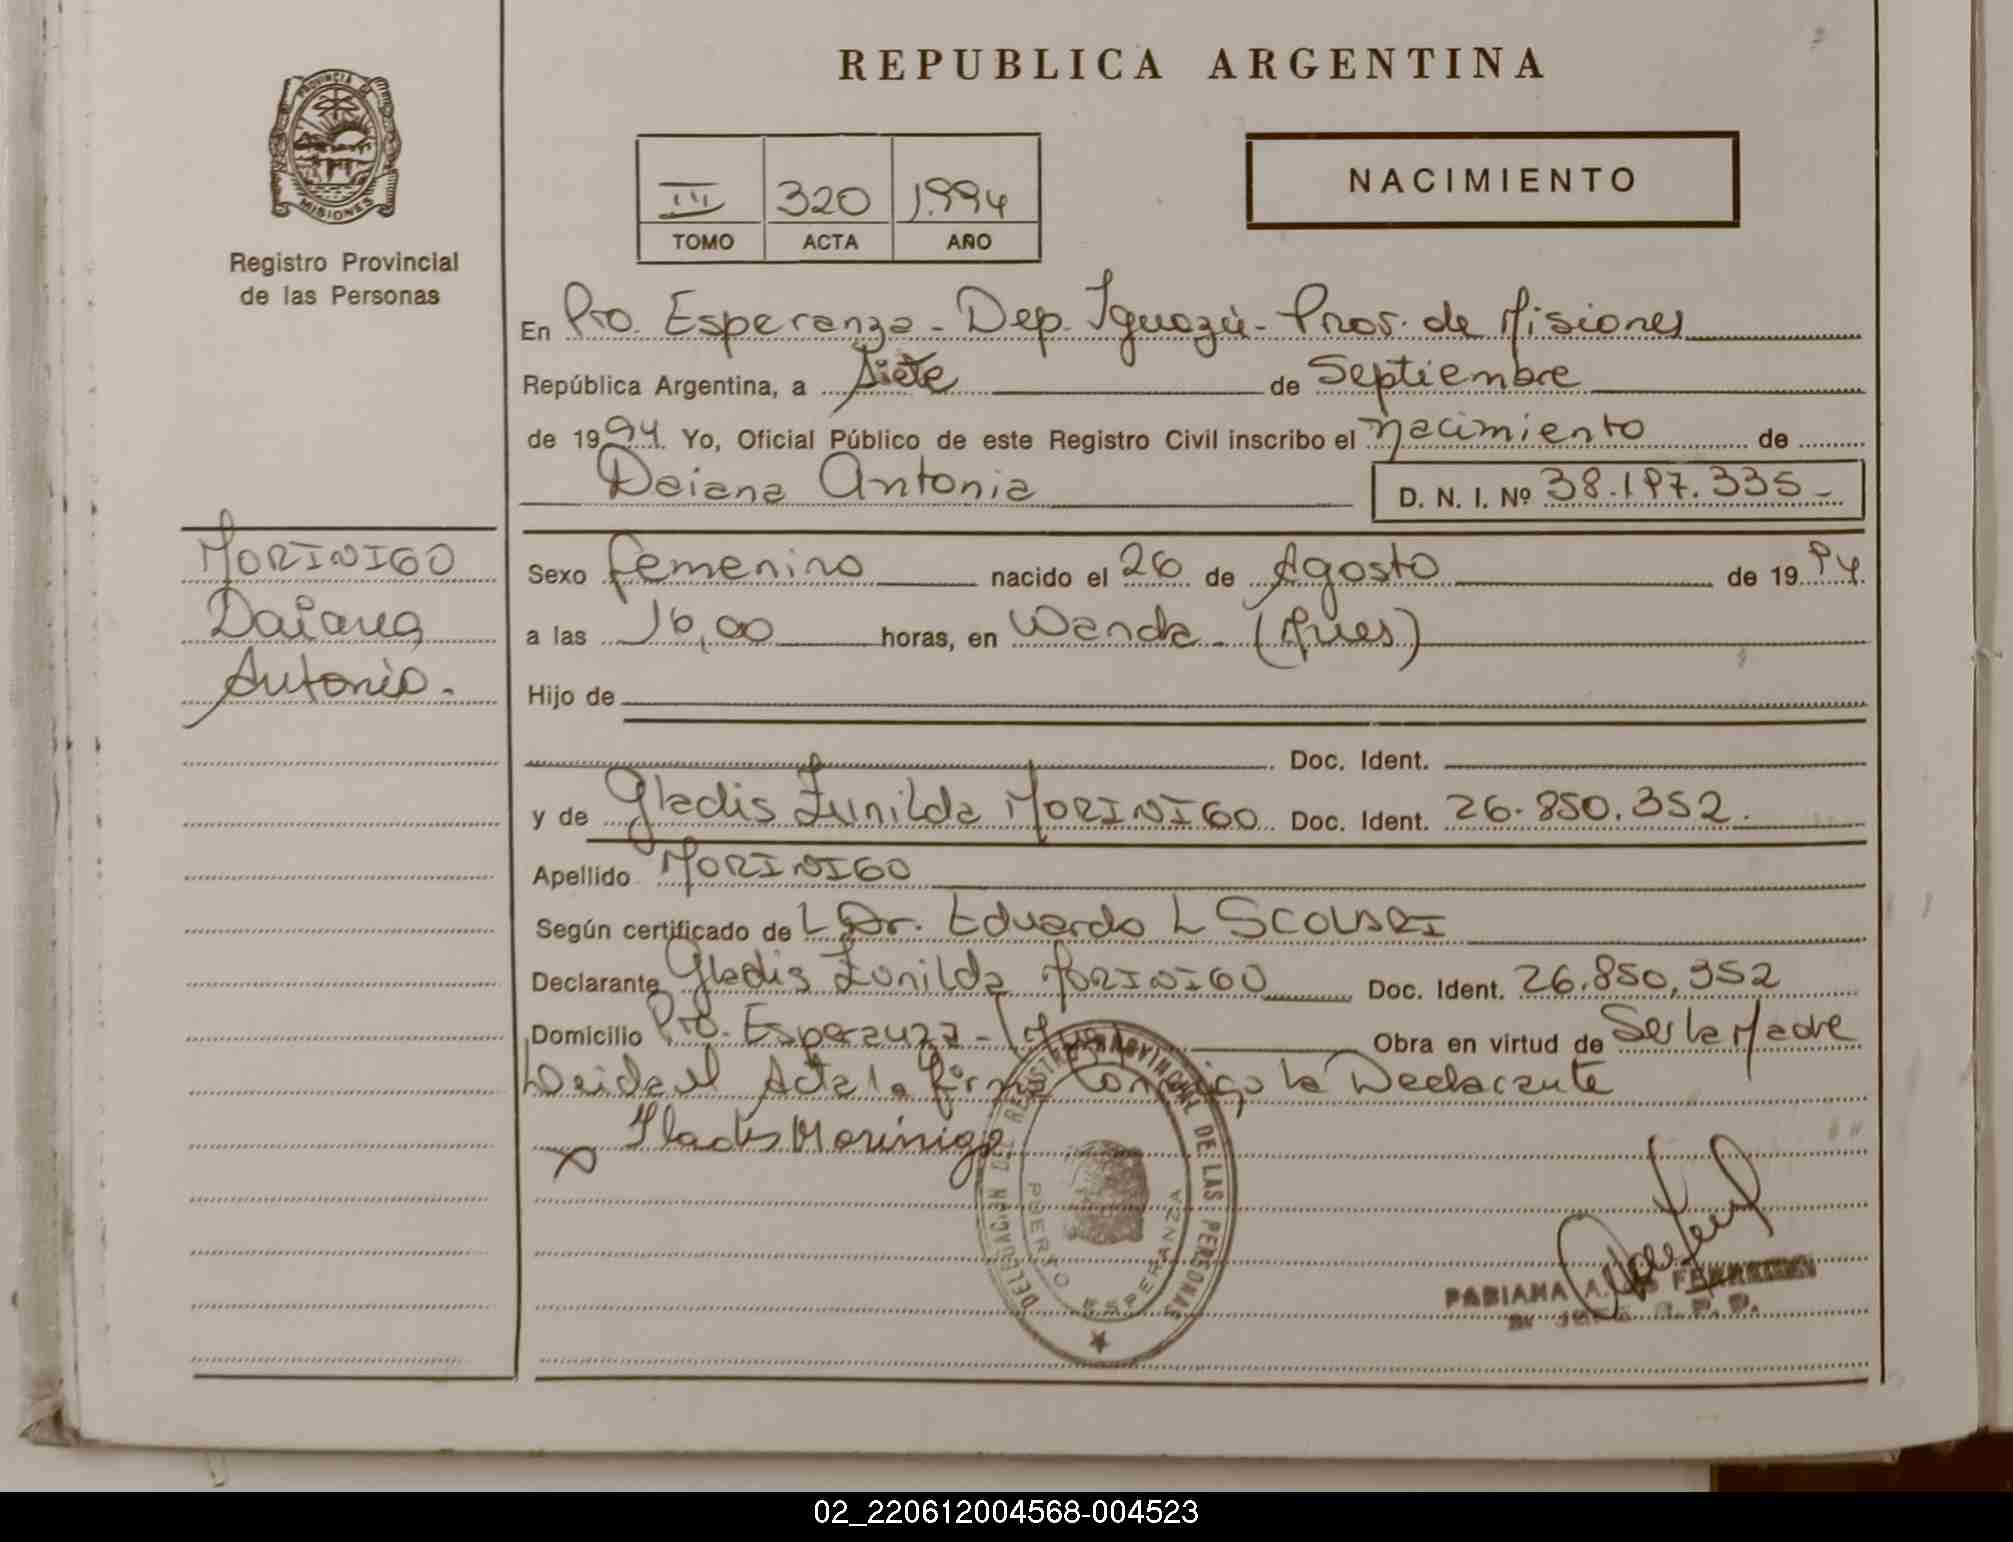 REPUBLICA ARGENTINA
PROVINCIA DE
MISIONES
Registro Provincial
de las Personas
III 320 1994
TOMO ACTA AÑO
NACIMIENTO
En Pto. Esperanza - Dep. Iguazú - Prov. de Misiones
República Argentina, a Siete de Septiembre
de 1994. Yo, Oficial Público de este Registro Civil inscribo el nacimiento de
Daiana Antonia D. N. I. Nº 38.197.335-
MORINIGO
Daiana
Antonia.
Sexo femenino nacido el 26 de Agosto de 1994
a las 16,00 horas, en Wanda - (Mnes)
Hijo de
Doc. Ident.
y de Gladis Zunilda MORINIGO Doc. Ident. 26.850.352.
Apellido MORINIGO
Según certificado de L Dr. Eduardo L
Declarante Gladis Zunilda MORINIGO Doc. Ident. 26.850.352
Domicilio Pto. Esperanza - Obra en virtud de Ser la Madre
Leida el Acta la firma Conmigo la Declarante
Gladis Morinigo
DELEGACION DEL REGISTRO PROVINCIAL DE LAS PERSONAS
PUERTO ESPERANZA
FABIANA A.
02_220612004568-004523